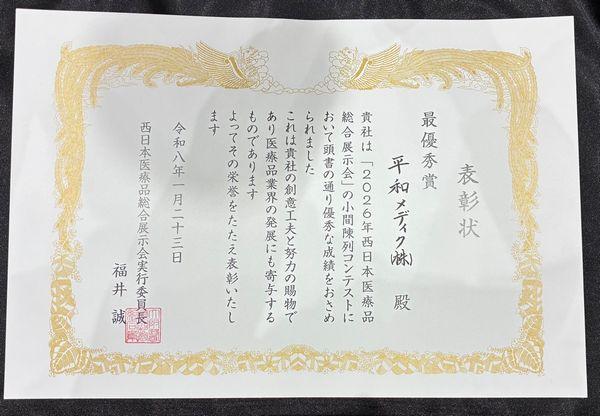 表彰状
最優秀賞
平和メディク㈱ 殿
貴社は「2026年西日本医療品
総合展示会」の小間陳列コンテストに
おいて頭書の通り優秀な成績をおさめ
られました
これは貴社の創意工夫と努力の賜物で
あり医療品業界の発展にも寄与する
ものであります
よってその栄誉をたたえ表彰いたし
ます
令和八年一月二十三日
西日本医療品総合展示会実行委員長
福井 誠